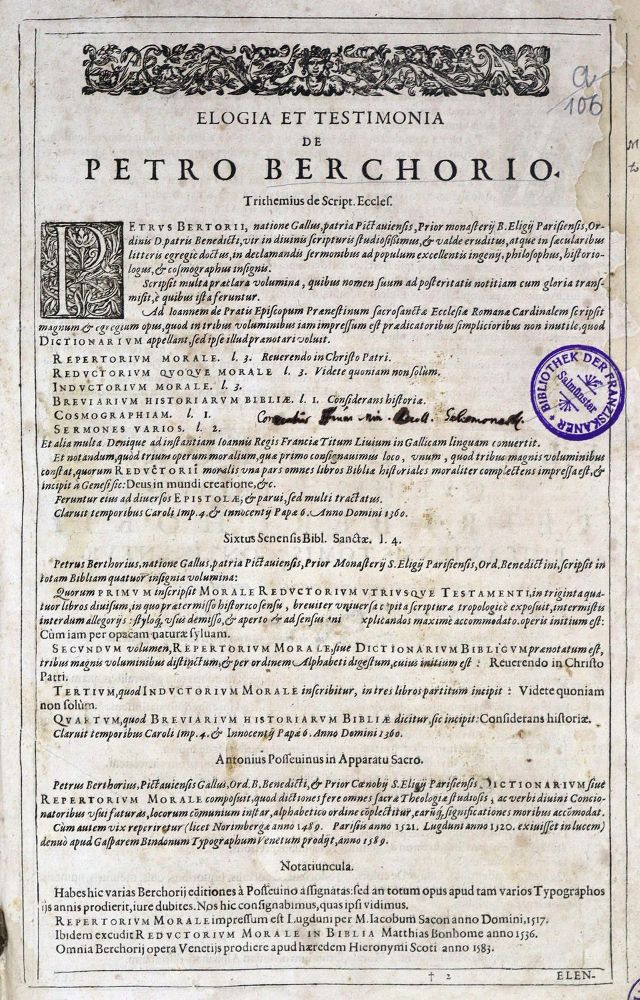 a
106
ELOGIA ET TESTIMONIA
DE
PETRO BERCHORIO.
Trithemius de Script. Eccles.
PETRVS BERTORII, natione Gallus, patria Pictauiensis, Prior monasterij B. Eligij Parisiensis, Or-
dinis D. patris Benedicti, vir in diuinis scripturis studiosissimus, & valde eruditus, atque in sæcularibus
litteris egregiè doctus, in declamandis sermonibus ad populum excellentis ingenij, philosophus, historio-
logus, & cosmographus insignis.
Scripsit multa præclara volumina, quibus nomen suum ad posteritatis notitiam cum gloria trans-
misit, è quibus ista feruntur.
Ad Ioannem de Pratis Episcopum Prænestinum sacrosanctæ Ecclesiæ Romanæ Cardinalem scripsit
magnum & egregium opus, quod in tribus voluminibus iam impressum est prædicatoribus simplicioribus non inutile, quod
DICTIONARIVM appellant, sed ipse illud prænotari voluit.
REPERTORIVM MORALE. l. 3. Reuerendo in Christo Patri.
REDVCTORIVM QVOQVE MORALE l. 3. Videte quoniam non solùm.
INDVCTORIVM MORALE. l. 3.
BREVIARIVM HISTORIARVM BIBLIÆ. l. 1. Considerans historiæ.
COSMOGRAPHIAM. l. 1.
SERMONES VARIOS. l. 2.
Et alia multa. Denique ad instantiam Ioannis Regis Franciæ Titum Liuium in Gallicam linguam conuertit.
Et notandum, quòd trium operum moralium, quæ primo consignauimus loco, vnum, quod tribus magnis voluminibus
constat, quorum REDVCTORII moralis vna pars omnes libros Bibliæ historiales moraliter complectens impressa est, &
incipit à Genesi sic: Deus in mundi creatione, &c.
Feruntur eius ad diuersos EPISTOLÆ, & parui, sed multi tractatus.
Claruit temporibus Caroli Imp. 4. & Innocentij Papæ 6. Anno Domini 1360.
BIBLIOTHEK DER FRANZISKANER
Salmünster
Sixtus Senensis Bibl. Sanctæ. l. 4.
Petrus Berthorius, natione Gallus, patria Pictauiensis, Prior Monasterij S. Eligij Parisiensis, Ord. Benedictini, scripsit in
totam Bibliam quatuor insignia volumina:
Quorum PRIMVM inscripsit MORALE REDVCTORIVM VTRIVSQVE TESTAMENTI, in triginta qua-
tuor libros diuisum, in quo prætermisso historico sensu, breuiter vniuersa scripturæ tropologicè exposuit, intermistis
interdum allegorijs: styloque, vsus demisso, & aperto & ad sensus explicandos maximè accommodato. operis initium est:
Cùm iam per opacam naturæ syluam.
SECVNDVM volumen, REPERTORIVM MORALE, siue DICTIONARIVM BIBLICVM prænotatum est,
tribus magnis voluminibus distinctum, & per ordinem Alphabeti digestum, cuius initium est: Reuerendo in Christo
Patri.
TERTIVM, quod INDVCTORIVM MORALE inscribitur, in tres libros partitum incipit: Videte quoniam
non solùm.
QVARTVM, quod BREVIARIVM HISTORIARVM BIBLIÆ dicitur, sic incipit: Considerans historiæ.
Claruit temporibus Caroli Imp. 4. & Innocentij Papæ 6. Anno Domini 1360.
Antonius Posseuinus in Apparatu Sacro.
Petrus Berthorius, Pictauiensis Gallus, Ord. B. Benedicti, & Prior Cœnobij S. Eligij Parisiensis DICTIONARIVM siue
REPERTORIVM MORALE composuit, quod dictiones fere omnes sacræ Theologiæ studiosis, ac verbi diuini Concio-
natoribus vsui futuras, locorum cōmunium instar, alphabetico ordine cōplectitur, earūq; significationes moribus accōmodat.
Cùm autem vix reperiretur (licet Norimbergæ anno 1489. Parisiis anno 1521. Lugduni anno 1520. exiuisset in lucem)
denuò apud Gasparem Bindonum Typographum Venetum prodijt, anno 1589.
Notatiuncula.
Habes hic varias Berchorij editiones à Posseuino assignatas: sed an totum opus apud tam varios Typographos
ijs annis prodierit, iure dubites. Nos hic consignabimus, quas ipsi vidimus.
REPERTORIVM MORALE impressum est Lugduni per M. Iacobum Sacon anno Domini, 1517.
Ibidem excudit REDVCTORIVM MORALE IN BIBLIA Matthias Bonhome anno 1536.
Omnia Berchorij opera Venetijs prodiere apud hæredem Hieronymi Scoti anno 1583.
† 2
ELEN-